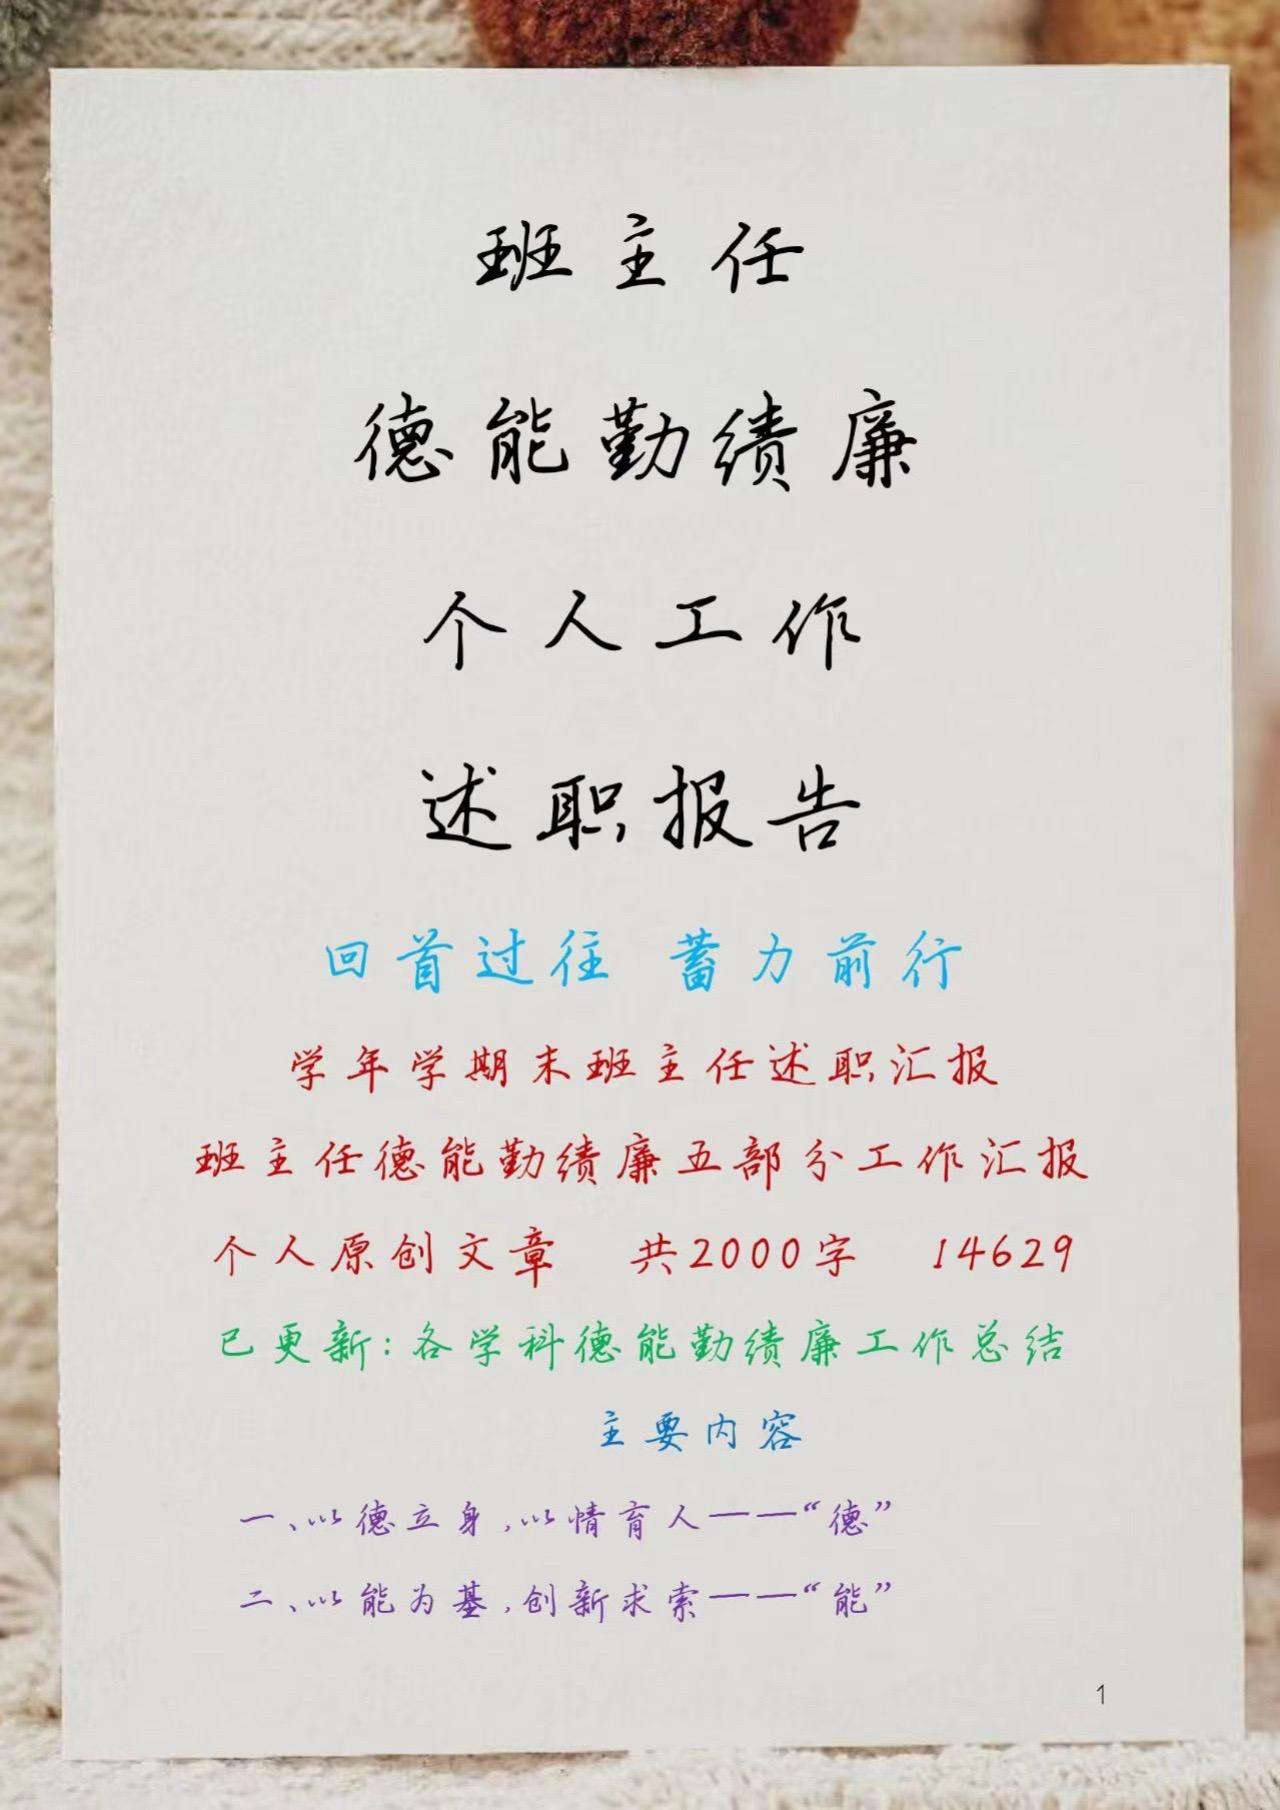 班主任
德能勤绩廉
个人工作
述职报告
回首过往 蓄力前行
学年学期末班主任述职汇报
班主任德能勤绩廉五部分工作汇报
个人原创文章 共2000字 14629
已更新:各学科德能勤绩廉工作总结
主要内容
一、以德立身,以情育人——“德”
二、以能为基,创新求索——“能”
1